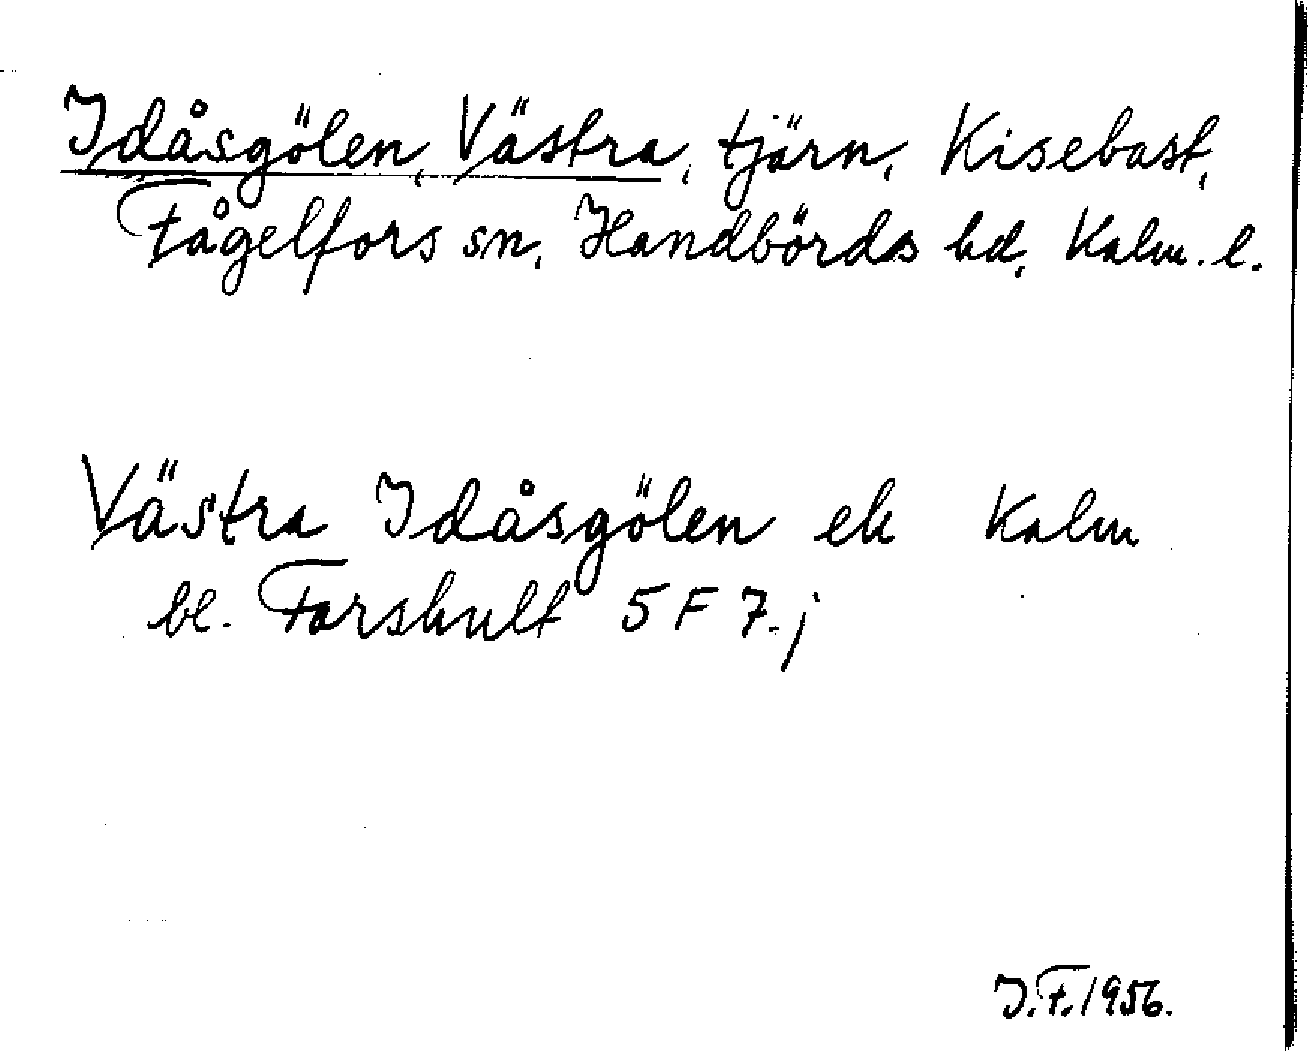 Idåsgölen, Västra, tjärn, Kisebast,
Fågelfors sn, Handbörds hd, Kalm. l.
Västra Idåsgölen ek Kalm
bl. Farshult 5 F 7. j
J. F. 1956.